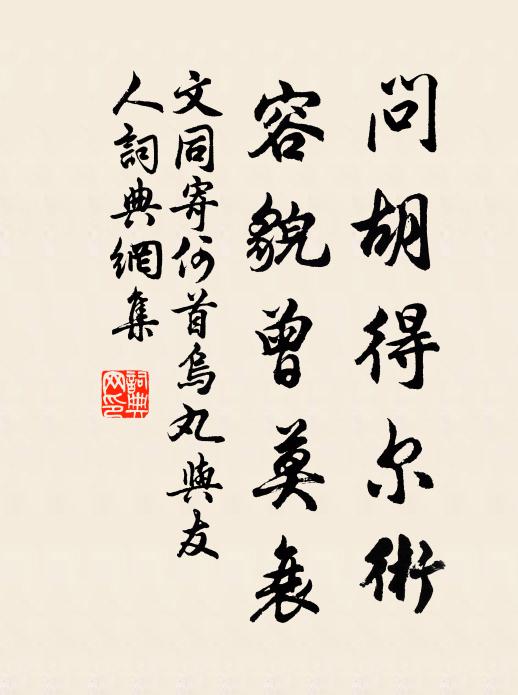 問胡得尔術
容貌曾莫衰
文同寄何首烏丸與友
人詞典網集
詞典
网印